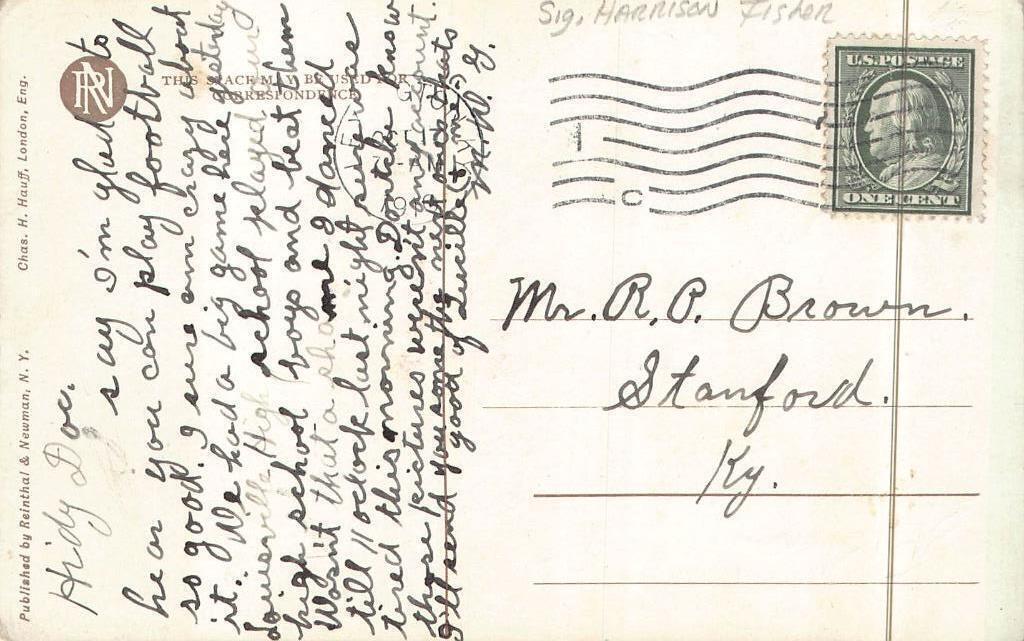 Sig. HARRISON FISHER
U.S. POSTAGE
ONE CENT
THIS SPACE MAY BE USED FOR
CORRESPONDENCE
RN
Chas. H. Hauff, London, Eng.
Published by Reinthal & Newman, N. Y.
Hidy Doc.
say I'm glad to
hear you can play football
so good. I sure am crazy about
it. We had a big game here yesterday
High school played our
high school boys and beat them
Wasn't that a shame I danced
till 11 oclock last night sure was
tired this morning. Dontcha know
those pictures weren't any account.
I'll send you some the next ones thats
good of Lucille (& me)
Mr. R. P. Brown.
Stanford.
Ky.